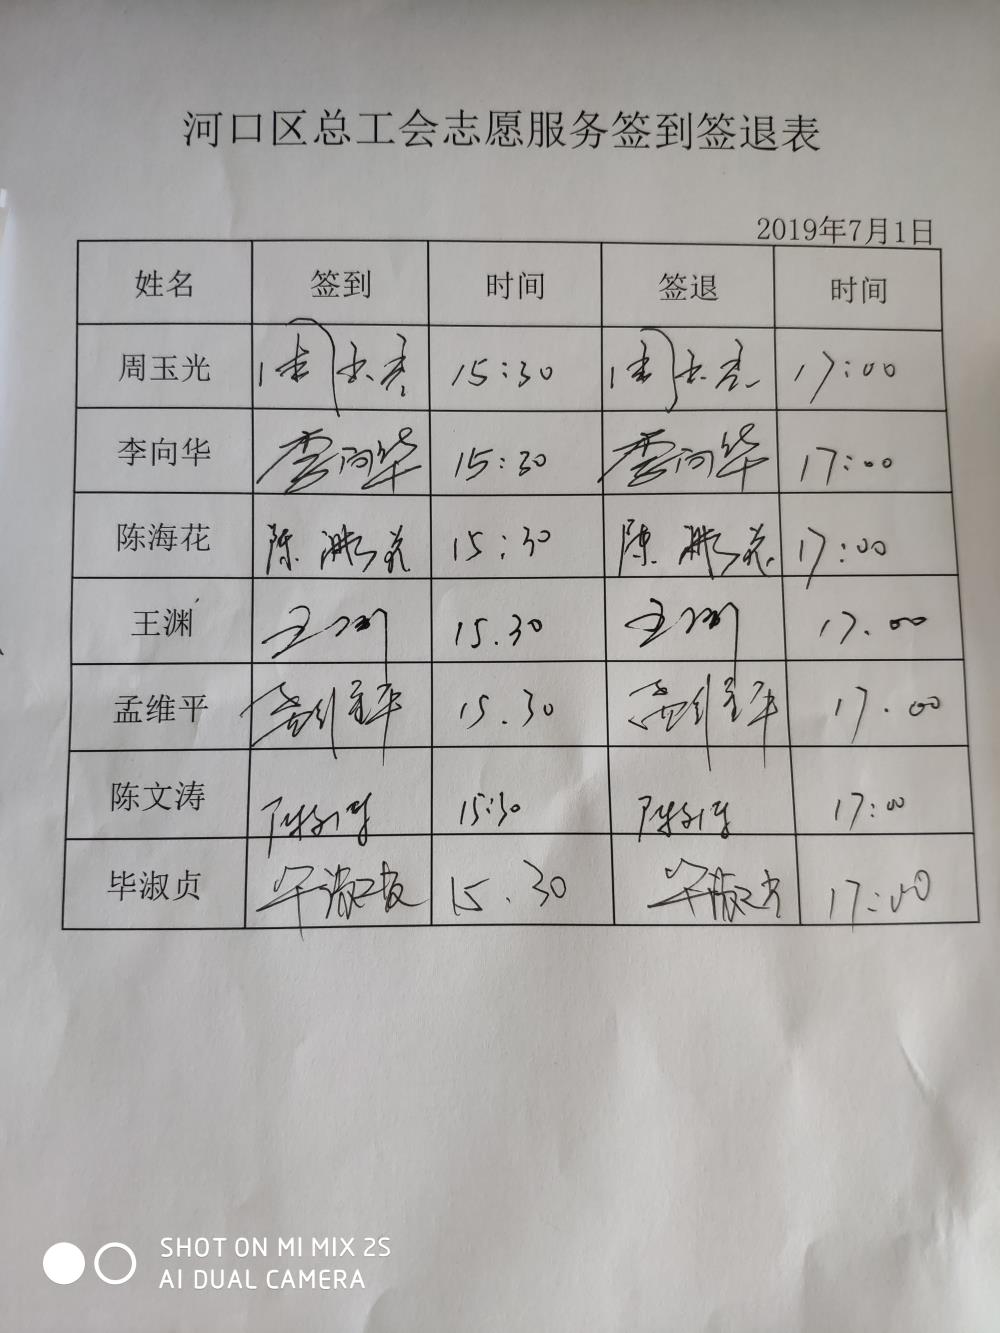 河口区总工会志愿服务签到签退表
2019年7月1日
姓名 签到 时间 签退 时间
周玉光 周玉光 15:30 周玉光 17:00
李向华 李向华 15:30 李向华 17:00
陈海花 陈海花 15:30 陈海花 17:00
王渊 王渊 15.30 王渊 17.00
孟维平 孟维平 15.30 孟维平 17.00
陈文涛 陈文涛 15:30 陈文涛 17:00
毕淑贞 毕淑贞 15.30 毕淑贞 17:00
SHOT ON MI MIX 2S
AI DUAL CAMERA